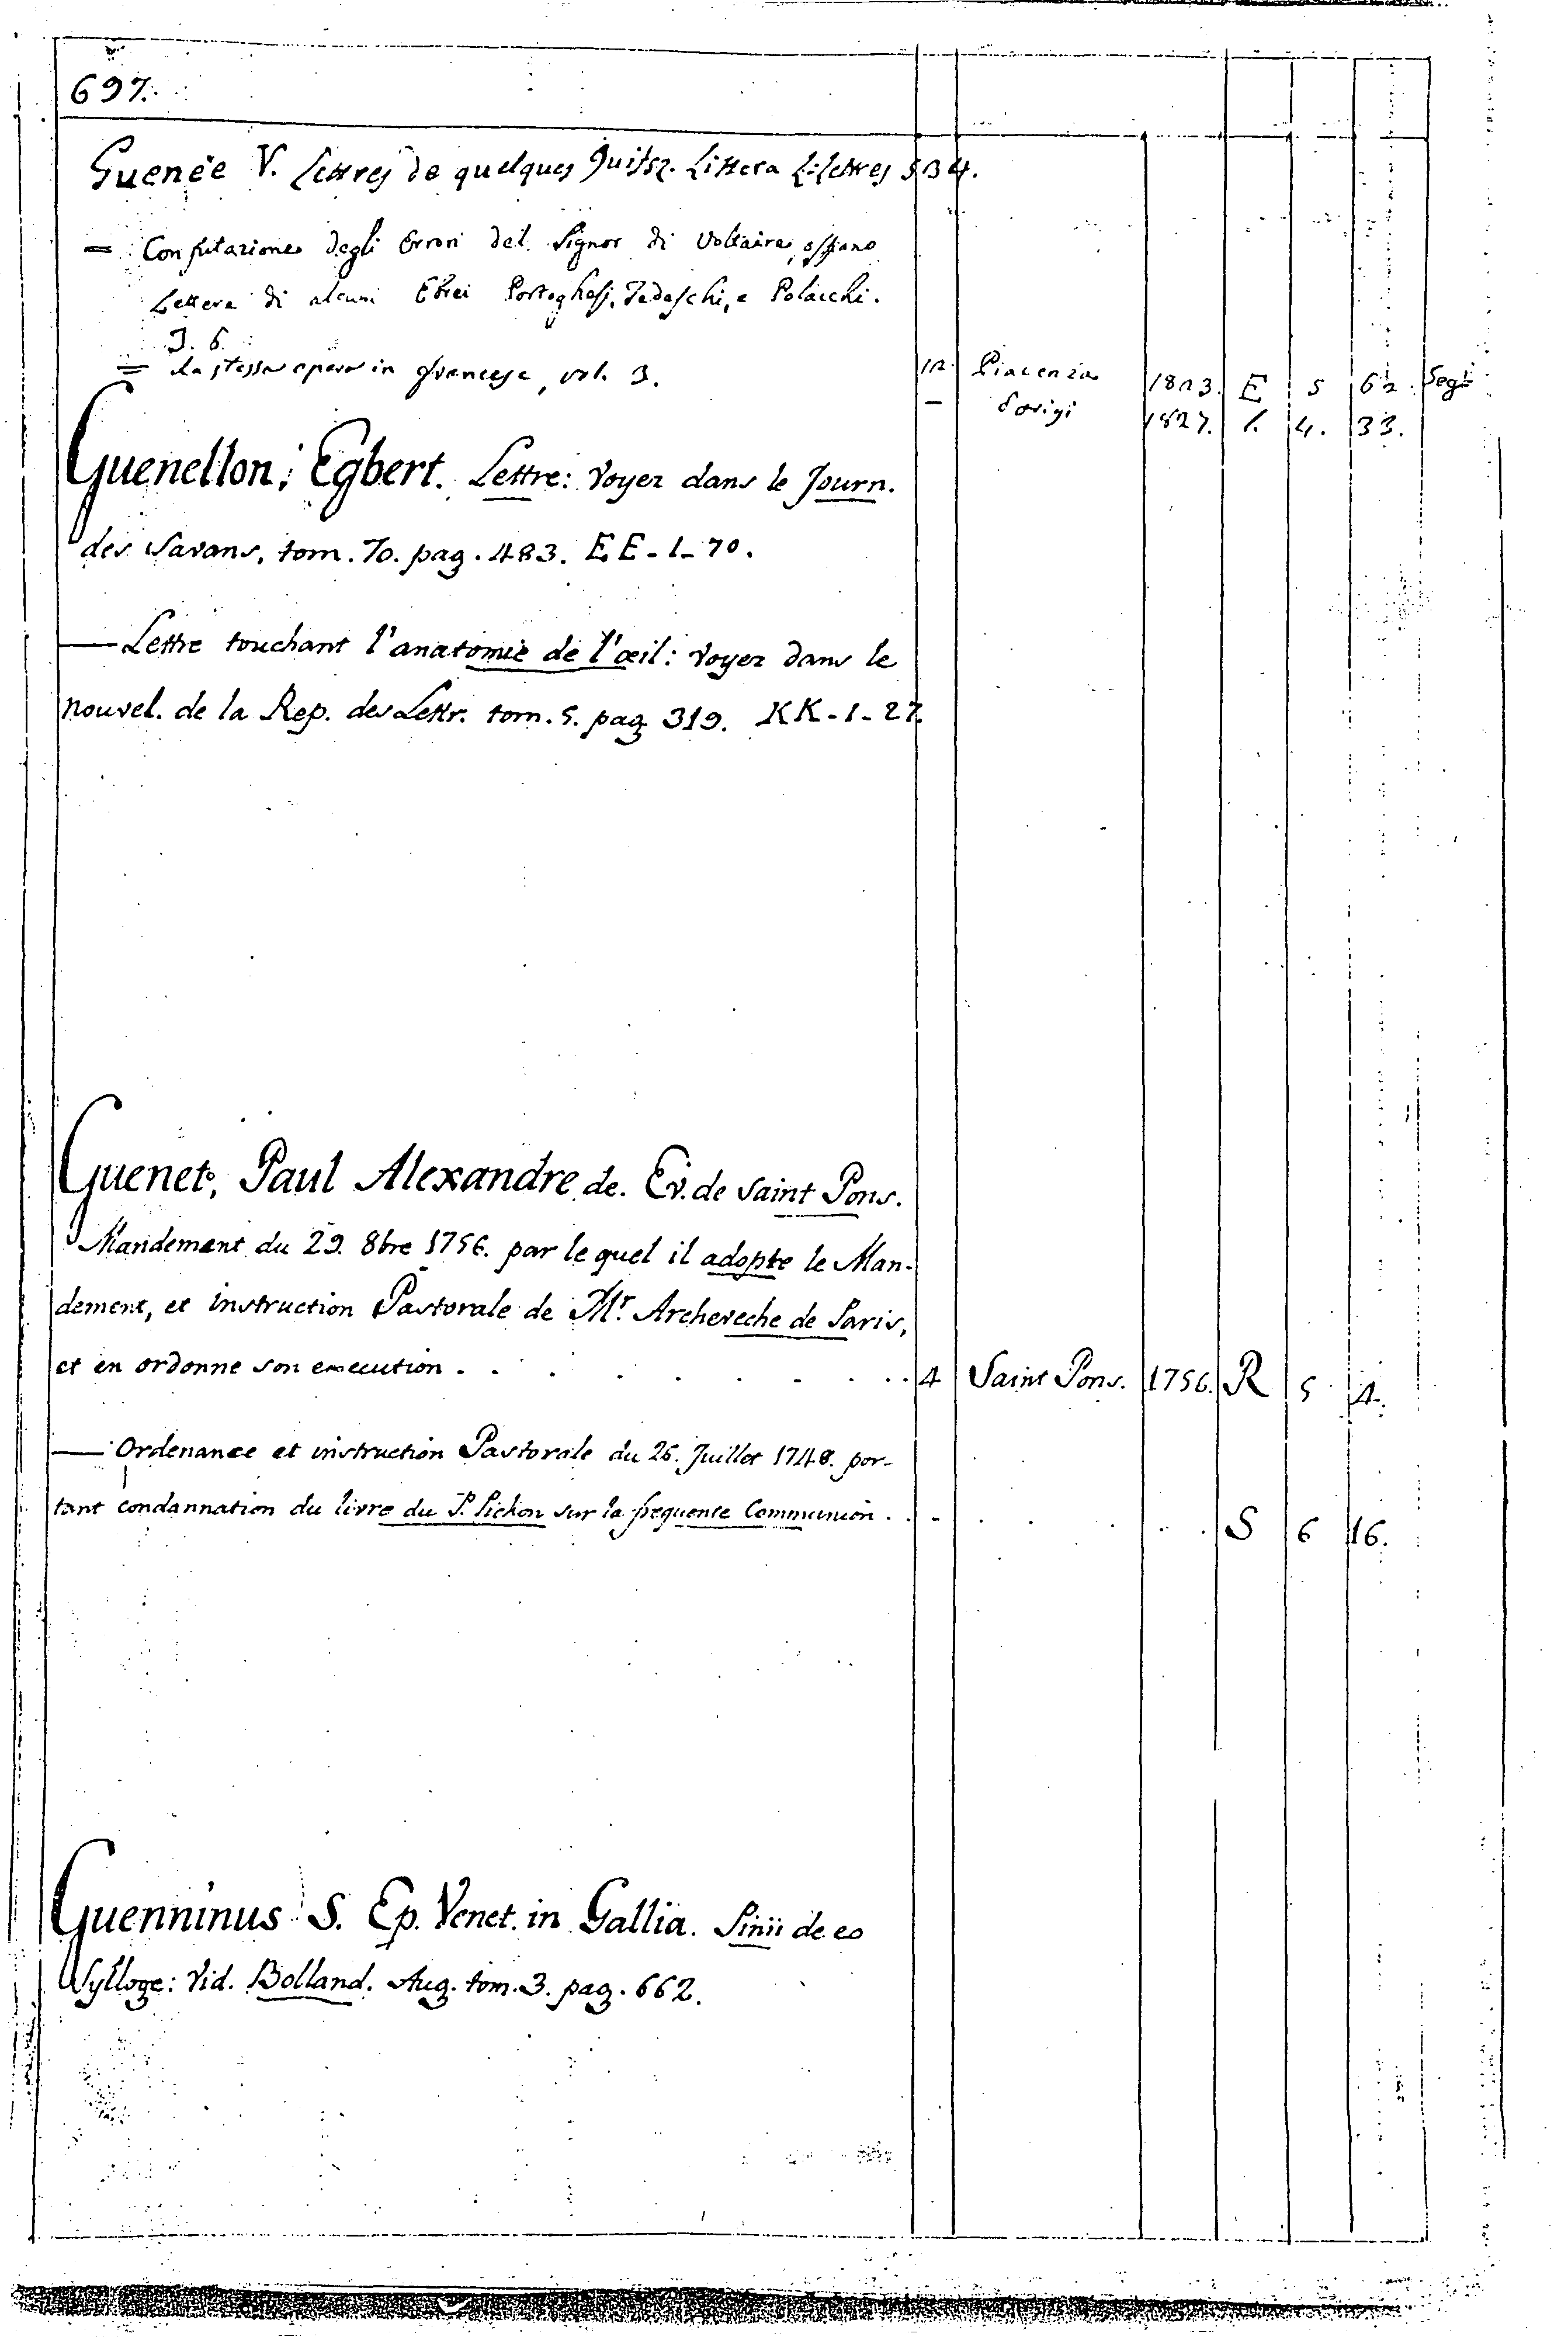 697.
Guenée V. Lettres de quelques Juifs &. Littera L: Lettres 534.
= Confutazione degli Errori del Signor di Voltaire, ossiano
Lettere di alcuni Ebrei Portoghesi, Tedeschi, e Polacchi.
T. 6. 12. Piacenza 1823. E 5 62. Segi
= La stessa opera in francese, vol. 3. — Parigi 1827. l. 4. 33.
Guenellon, Egbert. Lettre: Voyez dans le Journ.
des Savans, tom. 70. pag. 483. EE-1-70.
— Lettre touchant l'anatomie de l'œil: voyez dans le
nouvel. de la Rep. des Lettr. tom. 5. pag 319. KK-1-27.
Guenet, Paul Alexandre de. Ev. de Saint Pons.
Mandement du 29. 8bre 1756. par le quel il adopte le Man-
dement, et instruction Pastorale de Mr. Archeveche de Paris,
et en ordonne son execution . . . . . . . . 4 Saint Pons. 1756. R 5 4.
— Ordenance et instruction Pastorale du 26. Juillet 1748. por-
tant condannation du livre du P. Pichon sur la frequente Communion . . - . . . . . S 6 16.
Guenninus S. Ep. Venet. in Gallia. Pinii de eo
Sylloge: Vid. Bolland. Aug. tom. 3. pag. 662.